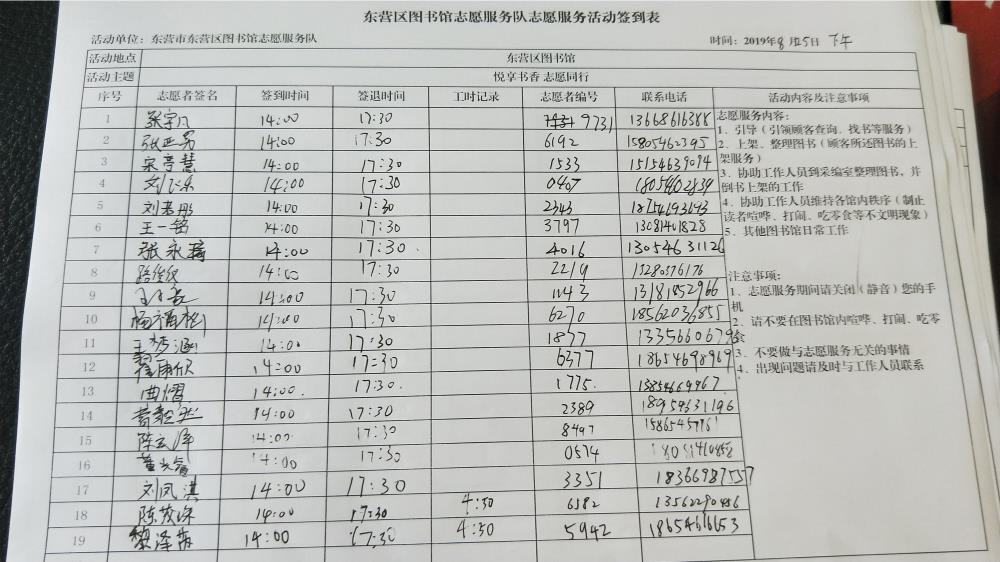 东营区图书馆志愿服务队志愿服务活动签到表
活动单位：东营市东营区图书馆志愿服务队 时间：2019年8月25日 下午
活动地点 东营区图书馆
活动主题 悦享书香 志愿同行
序号 志愿者签名 签到时间 签退时间 工时记录 志愿者编号 联系电话 活动内容及注意事项
1 张宇凡 14:00 17:30 9731 13668616388
2 14:00 17:30 6192 15805462395
3 宋亭慧 14:00 17:30 1533 15154639094
4 14:00 17:30 0407 18054602839
5 刘若彤 14:00 17:30 2343
6 王一铭 14:00 17:30 3797 13081401828
7 张永瑞 14:00 17:30 4016 13054631126
8 14:00 17:30 2219
9 14:00 17:30 1143 13181852966
10 14:00 17:30 6270 18562036855
11 王梦涵 14:00 17:30 1877 13356606796
12 14:00 17:30 6377 18654698969
13 曲熠 14:00 17:30. 1775.
14 14:00 17:30 2389 18959331196
15 14:00 17:30 8497
16 14:00 17:30 0574
17 刘凤淇 14:00 17:30 3351 18366987557
18 14:00 17:30 4:30 6582 13562290486
19 黎泽苒 14:00 17:30 4:30 5942
志愿服务内容：
1、引导（引领顾客查询、找书等服务）
2、上架、整理图书（顾客所还图书的上
架服务）
3、协助工作人员到采编室整理图书，并
倒书上架的工作
4、协助工作人员维持各馆内秩序（制止
读者喧哗、打闹、吃零食等不文明现象）
5、其他图书馆日常工作
注意事项：
1、志愿服务期间请关闭（静音）您的手
机
2、请不要在图书馆内喧哗、打闹、吃零
食
3、不要做与志愿服务无关的事情
4、出现问题请及时与工作人员联系